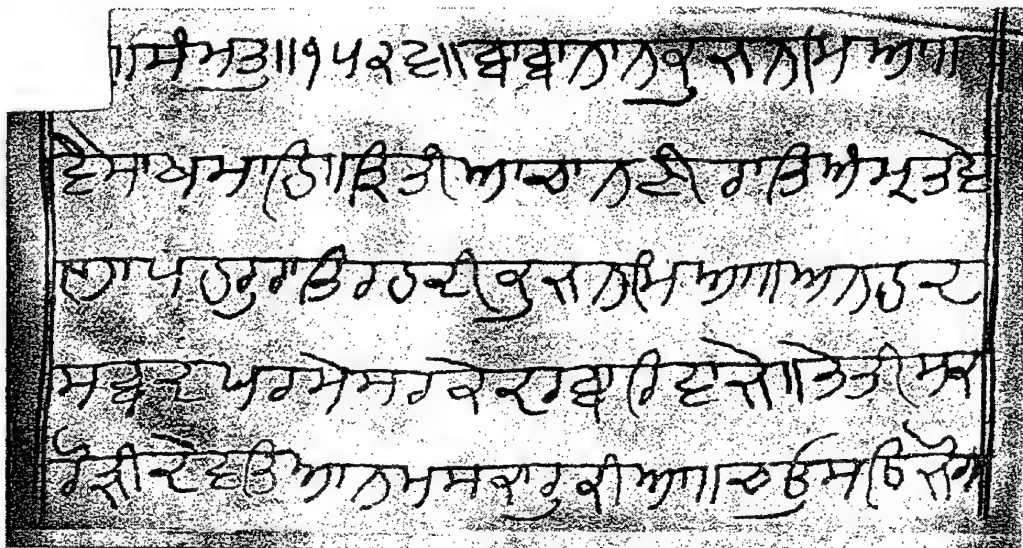 ॥ਸੰਮਤੁ॥੧੫੨੬॥ ਬਾਬਾ ਨਾਨਕੁ ਜਨਮਿਆ॥
ਵੈਸਾਖ ਮਾਹਿ॥ ਤ੍ਰਿਤੀਆ ਚਾਨਣੀ ਰਾਤਿ ਅੰਮ੍ਰਤ ਵੇ
ਲਾ ਪਹਰੁ ਰਾਤਿ ਰਹਦੀ ਕੁ ਜਨਮਿਆ॥ ਅਨਹਦ
ਸਬਦ ਪਰਮੇਸਰ ਕੇ ਦਰਬਾਰਿ ਵਾਜੇ॥ ਤੇਤੀਸ ਕ
ਰੋੜੀ ਦੇਵਤਿਆ ਨਮਸਕਾਰੁ ਕੀਆ॥ ਚਉਸਠਿ ਜੋਗ